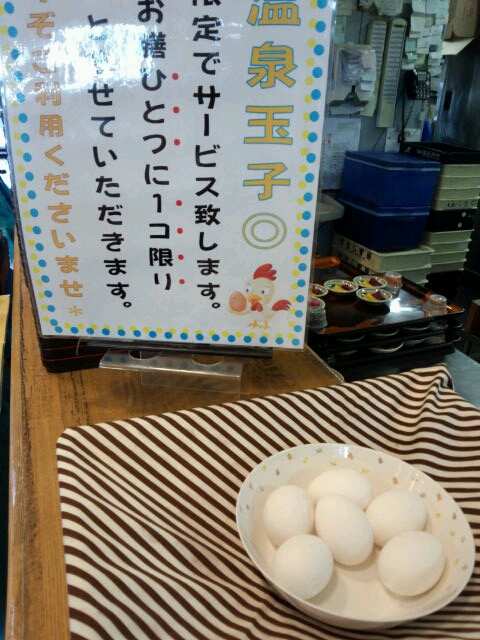 温泉玉子◎
限定でサービス致します。
お膳ひとつに1コ限り
とさせていただきます。
ぞご利用くださいませ*